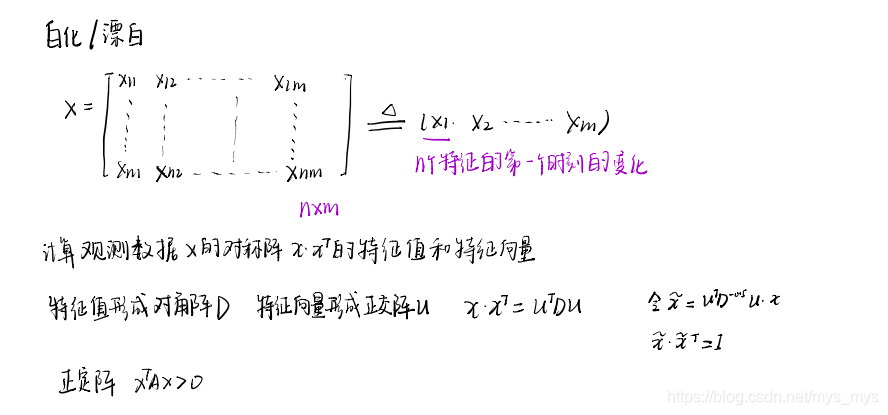 白化/漂白
X = [ x11 x12 ------- x1m ; xn1 xn2 ------- xnm ] ≜ (x1. x2 ------ xm)
n个特征的第一个时刻的变化
n×m
计算观测数据x的对称阵 x·xᵀ的特征值和特征向量
特征值形成对角阵D 特征向量形成正交阵U x·xᵀ=UᵀDU 令 x̃ = UᵀD⁻⁰·⁵U·x
x̃·x̃ᵀ=I
正定阵 xᵀAx>0
https://blog.csdn.net/mys_mys